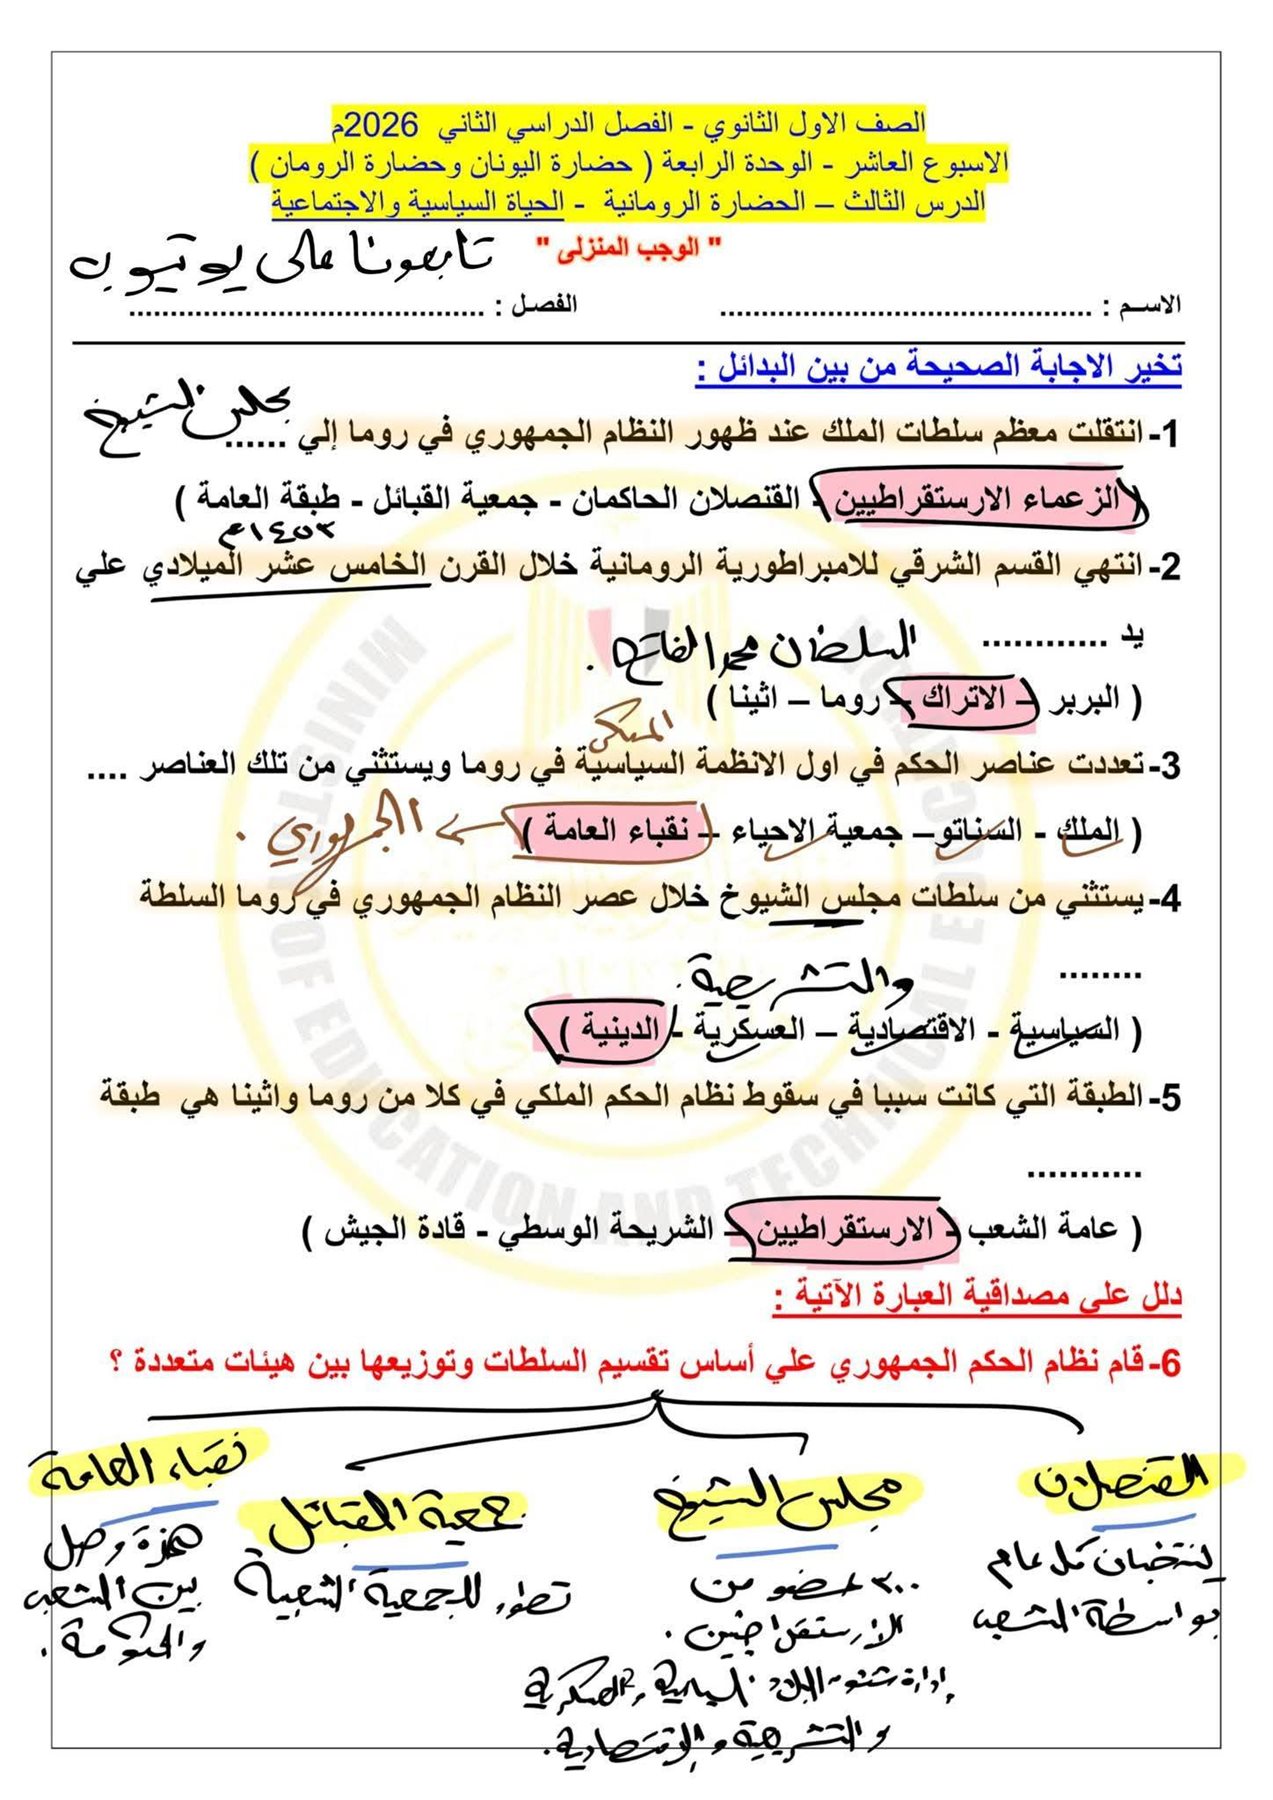 الصف الاول الثانوي - الفصل الدراسي الثاني 2026م
الاسبوع العاشر - الوحدة الرابعة ( حضارة اليونان وحضارة الرومان )
الدرس الثالث – الحضارة الرومانية - الحياة السياسية والاجتماعية
" الوجب المنزلى "
تابعونا على يوتيوب
الاسـم : ............................................ الفصل : ..........................................
تخير الاجابة الصحيحة من بين البدائل :
مجلس الشيوخ
1- انتقلت معظم سلطات الملك عند ظهور النظام الجمهوري في روما إلي ......
( الزعماء الارستقراطيين - القنصلان الحاكمان - جمعية القبائل - طبقة العامة )
١٤٥٣م
2- انتهي القسم الشرقي للامبراطورية الرومانية خلال القرن الخامس عشر الميلادي علي
يد ............
السلطان محمد الفاتح .
( البربر – الاتراك – روما – اثينا )
الملكي
3- تعددت عناصر الحكم في اول الانظمة السياسية في روما ويستثني من تلك العناصر ....
( الملك - السناتو – جمعية الاحياء – نقباء العامة ) الجمهوري .
4- يستثني من سلطات مجلس الشيوخ خلال عصر النظام الجمهوري في روما السلطة
........
والتشريعية .
( السياسية - الاقتصادية – العسكرية - الدينية )
5- الطبقة التي كانت سببا في سقوط نظام الحكم الملكي في كلا من روما واثينا هي طبقة
...........
( عامة الشعب – الارستقراطيين – الشريحة الوسطي - قادة الجيش )
دلل علي مصداقية العبارة الآتية :
6- قام نظام الحكم الجمهوري علي أساس تقسيم السلطات وتوزيعها بين هيئات متعددة ؟
القنصلان
ينتخبان كل عام
بواسطة الشعب
مجلس الشيوخ
٣٠٠ عضو من
الارستقراطيين .
إدارة شئون البلاد السياسية والعسكرية
والتشريعية والاقتصادية .
جمعية القبائل
تطور للجمعية الشعبية
نقباء العامة
همزة وصل
بين الشعب
والحكومة .
MINISTRY OF EDUCATION AND TECHNICAL EDUCATION